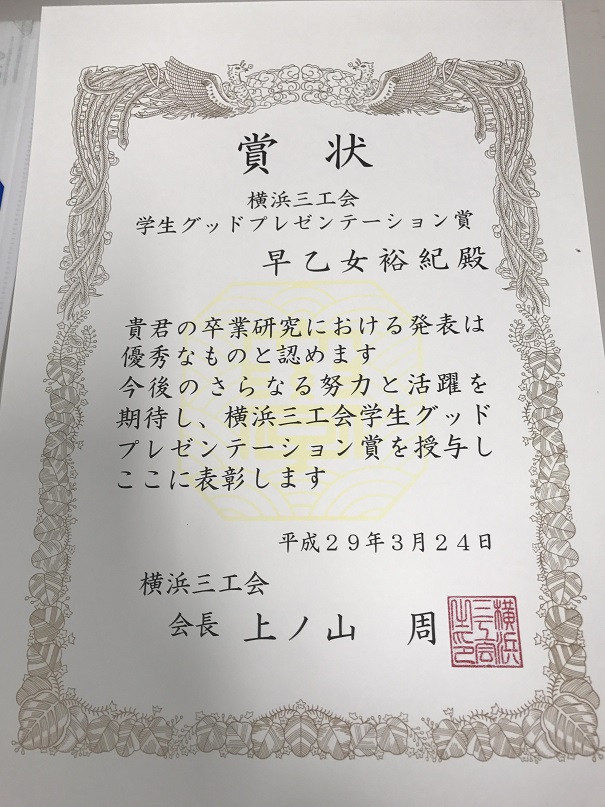 賞状
横浜三工会
学生グッドプレゼンテーション賞
早乙女裕紀殿
貴君の卒業研究における発表は
優秀なものと認めます
今後のさらなる努力と活躍を
期待し、横浜三工会学生グッド
プレゼンテーション賞を授与し
ここに表彰します
平成29年3月24日
横浜三工会
会長 上ノ山 周
横浜
三工会
之印